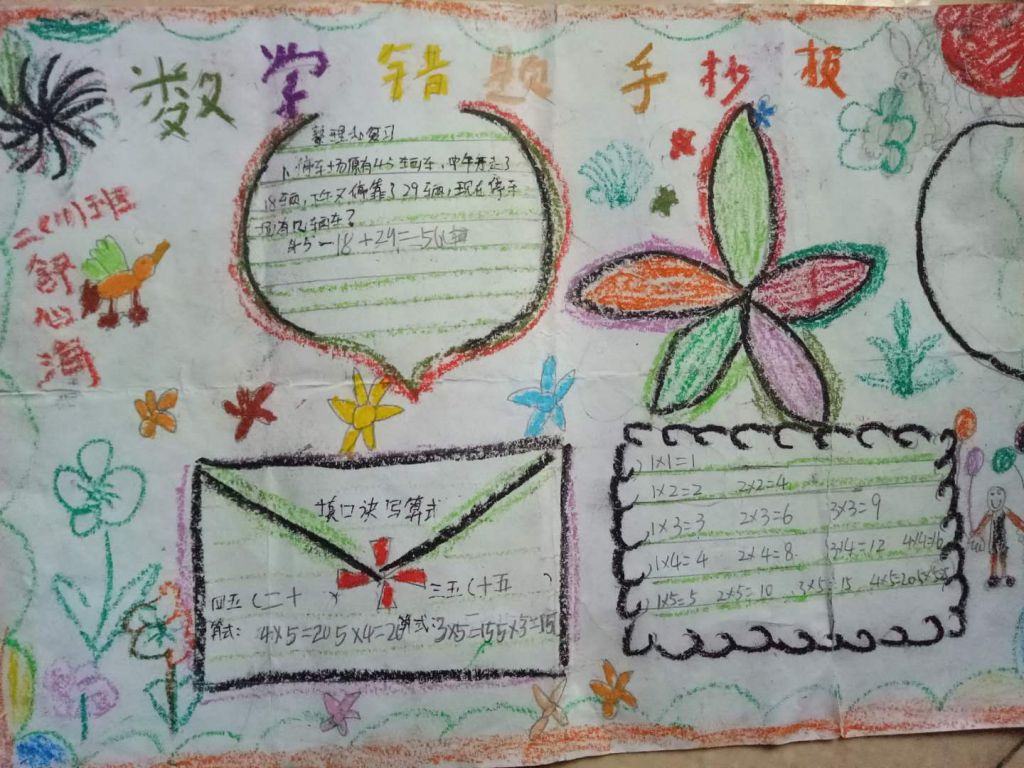 数学错题手抄板
二(川)班
舒心海
整理和复习
1、停车场原有45辆车,中午开走了
18辆,下午又停靠了29辆,现在停车
场有几辆车?
45-18+29=56辆
填口诀写算式
四五(二十 )
三五(十五 )
算式: 4×5=20 5×4=20
算式: 3×5=15 5×3=15
1×1=1
1×2=2 2×2=4
1×3=3 2×3=6 3×3=9
1×4=4 2×4=8 3×4=12 4×4=16
1×5=5 2×5=10 3×5=15 4×5=20 5×5=25